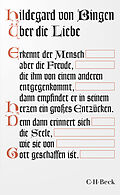 Hildegard von Bingen
Über die Liebe
Erkennt der Mensch
aber die Freude,
die ihm von einem anderen
entgegenkommt,
dann empfindet er in seinem
Herzen ein großes Entzücken.
Denn dann erinnert sich
die Seele,
wie sie von
Gott geschaffen ist.
C·H·Beck